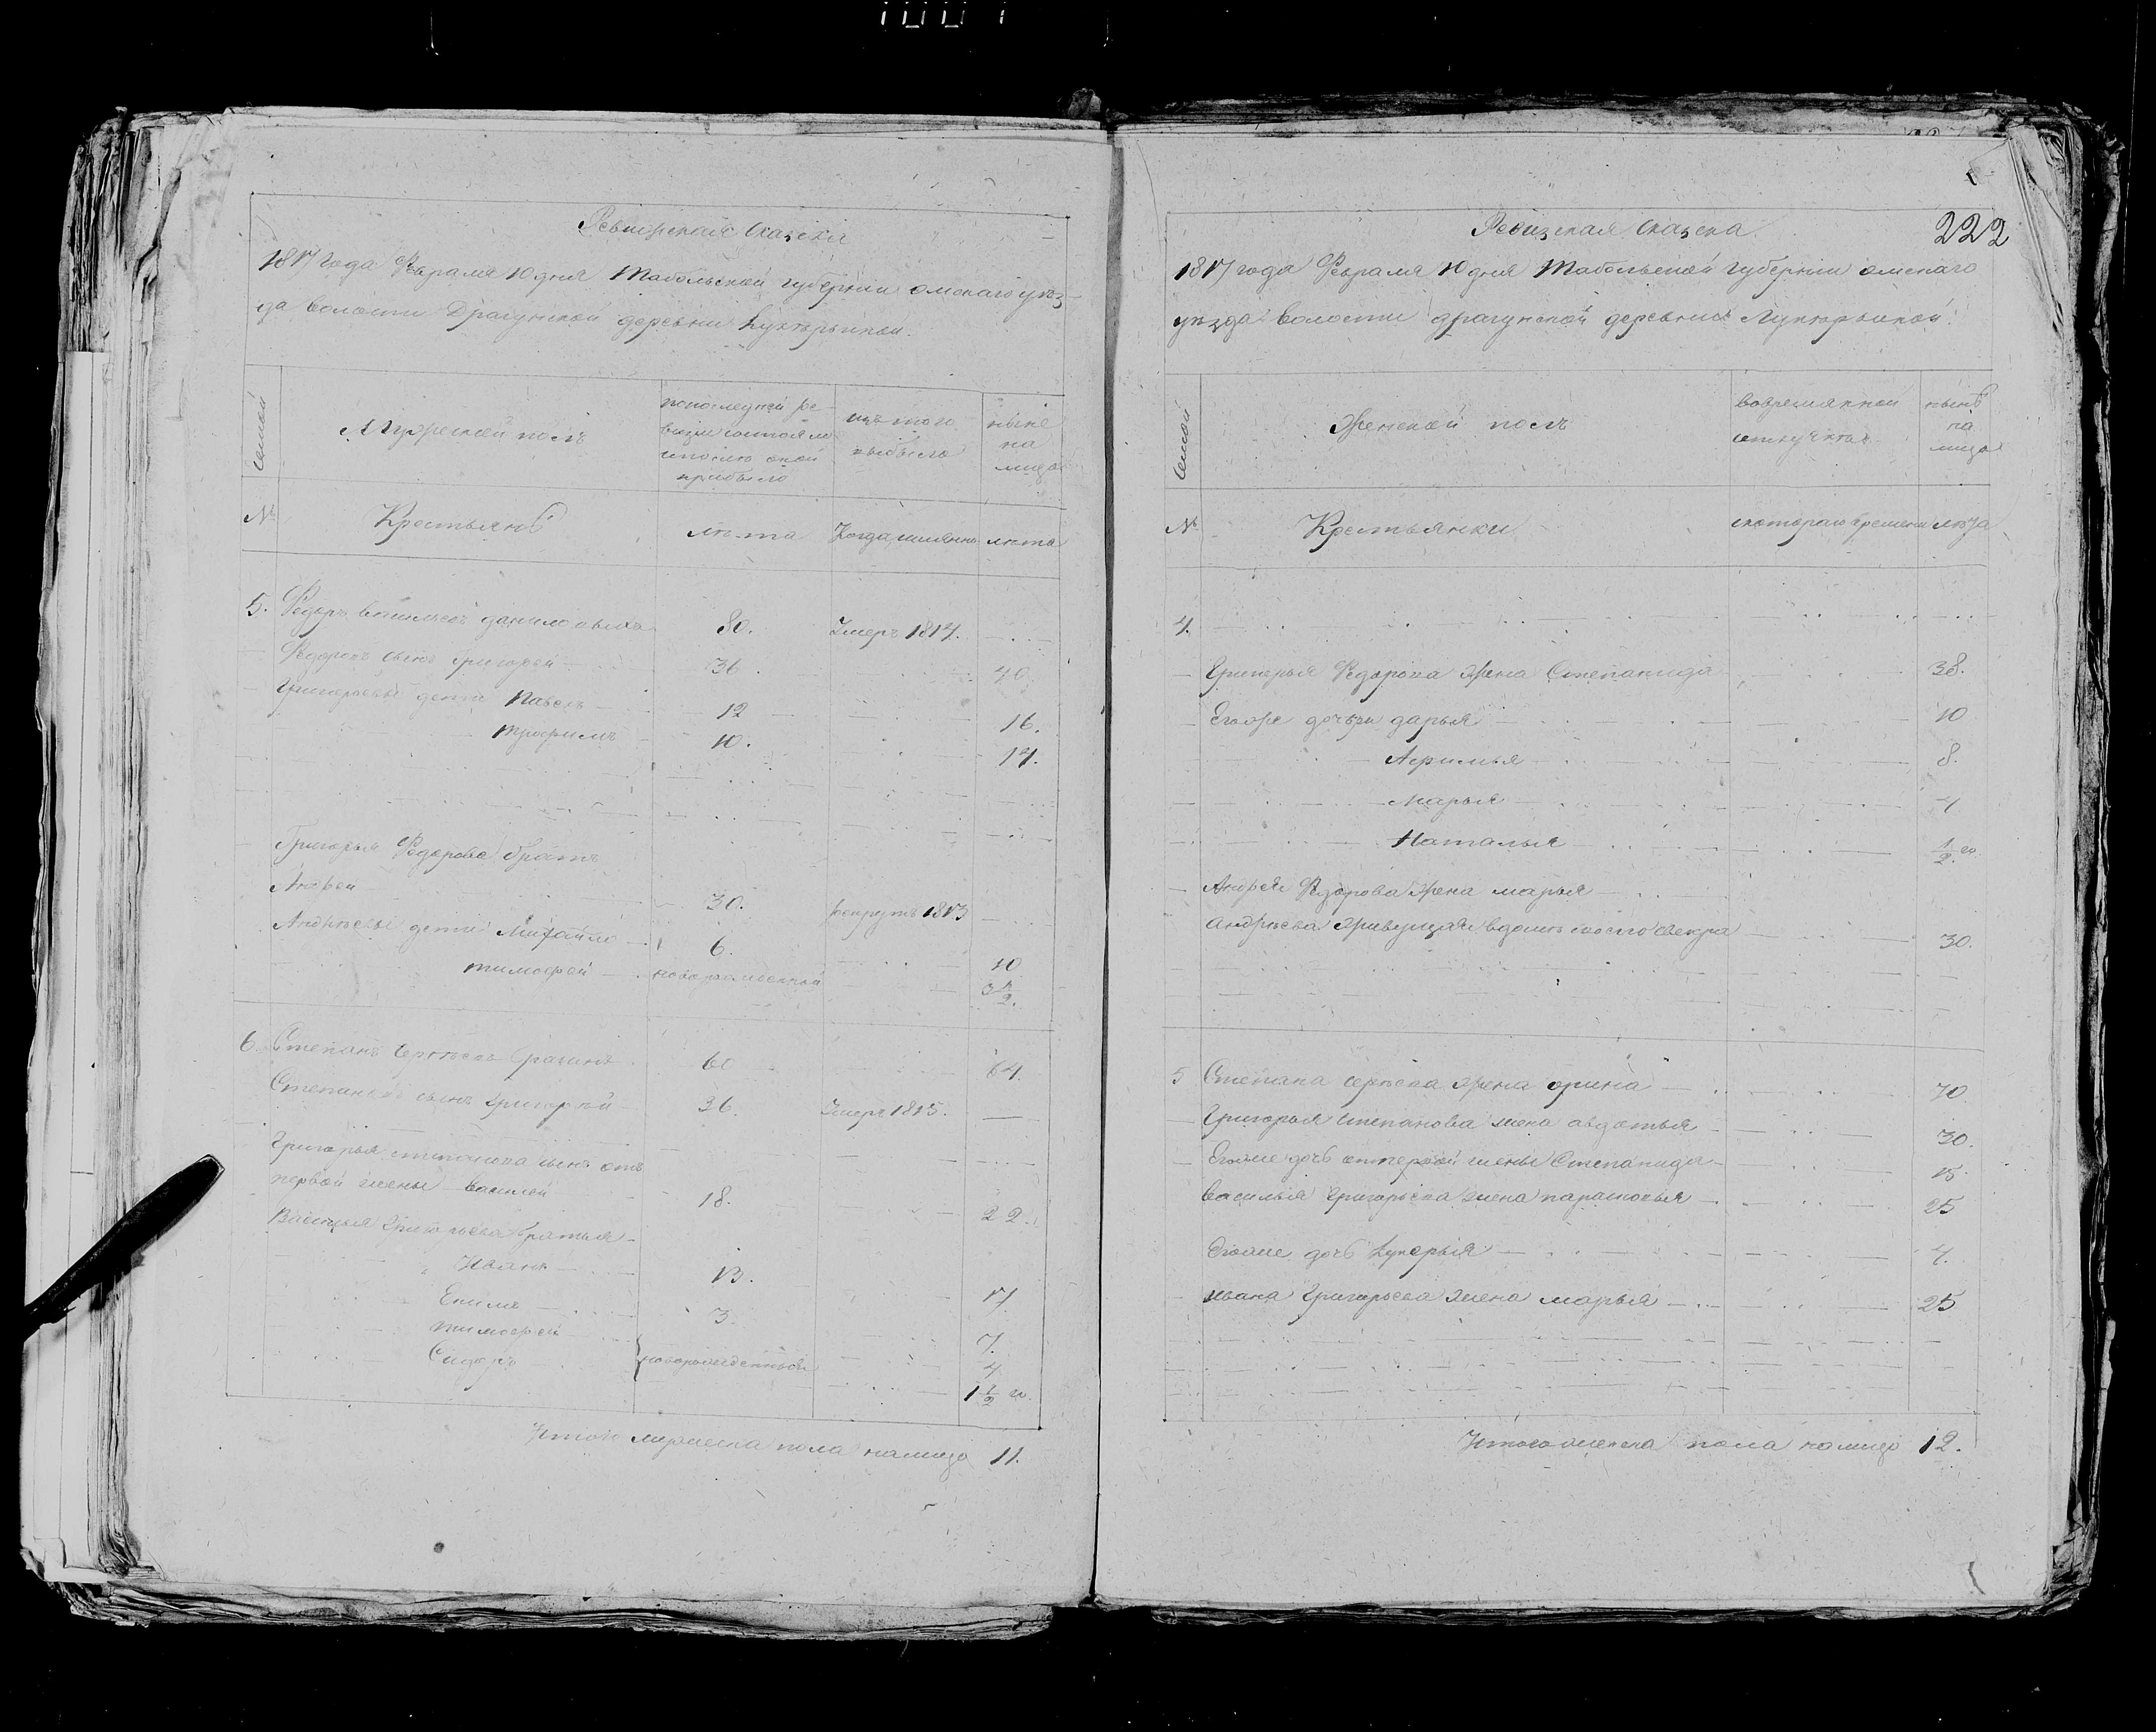 Ревизская Сказска
1817 года Февраля 10 дня Тобольской губернии омскаго уѣз-
да волости Драгунской деревни
Семьи
Мужеской полъ
попоследней ре-
визии состояло
ипосле оной
прибыло
изъ того
выбыло
ныне
на
лицо
№
Крестьянѣ
лѣта
Когда имянно
лѣта
5. Федоръ васильевъ даниловыхъ 80. Умеръ 1814.
Федоровъ сынъ Григорей 36. 40.
Григорьевы дети Павелъ 12 16.
Трофимъ 10. 14.
Григорья Федорова братъ
Андрей 30. рекрутъ 1813
Андрѣевы дети Михайло 6. 10
тимофей новорожденной 3 1/2.
6. Степанъ Сергѣевъ 60 64.
Степановъ сынъ Григорей 36. Умеръ 1815.
Григорья степанова сынъ отъ
первой жены Василей 18. 22.
Василья Григорьева братья
Иванъ 13. 17
Екимъ 3. 7.
тимофей 4
Сидоръ новорожденныя 1 1/2 го.
Итого мужеска пола налицо 11.
222
Ревизская Сказска
1817 года Февраля 10 дня Тобольской губернии омскаго
уѣзда волости драгунской деревни
Семьи
Женской полъ
вовремянной
отлучкѣ
нынѣ
на
лицо
№
Крестьянки
скотораго времени
лѣта
4.
Григорья Федорова жена Степанида 38.
Егоже дочери дарья 10
Афимья 8.
Марья 4
Наталья 1/2 го.
Андрея Федорова жена марья
андрѣева живущая вдомѣ своего свекра 30.
5 Степана сергѣева жена орина 70
Григорья степанова жена авдотья 30.
Егоже дочь отпервой жены Степанида 15.
василья Григорьева жена парасковья 25
Егоже дочь лукерья 4.
ивана Григорьева жена марья 25
Итого женска пола налицо 12.